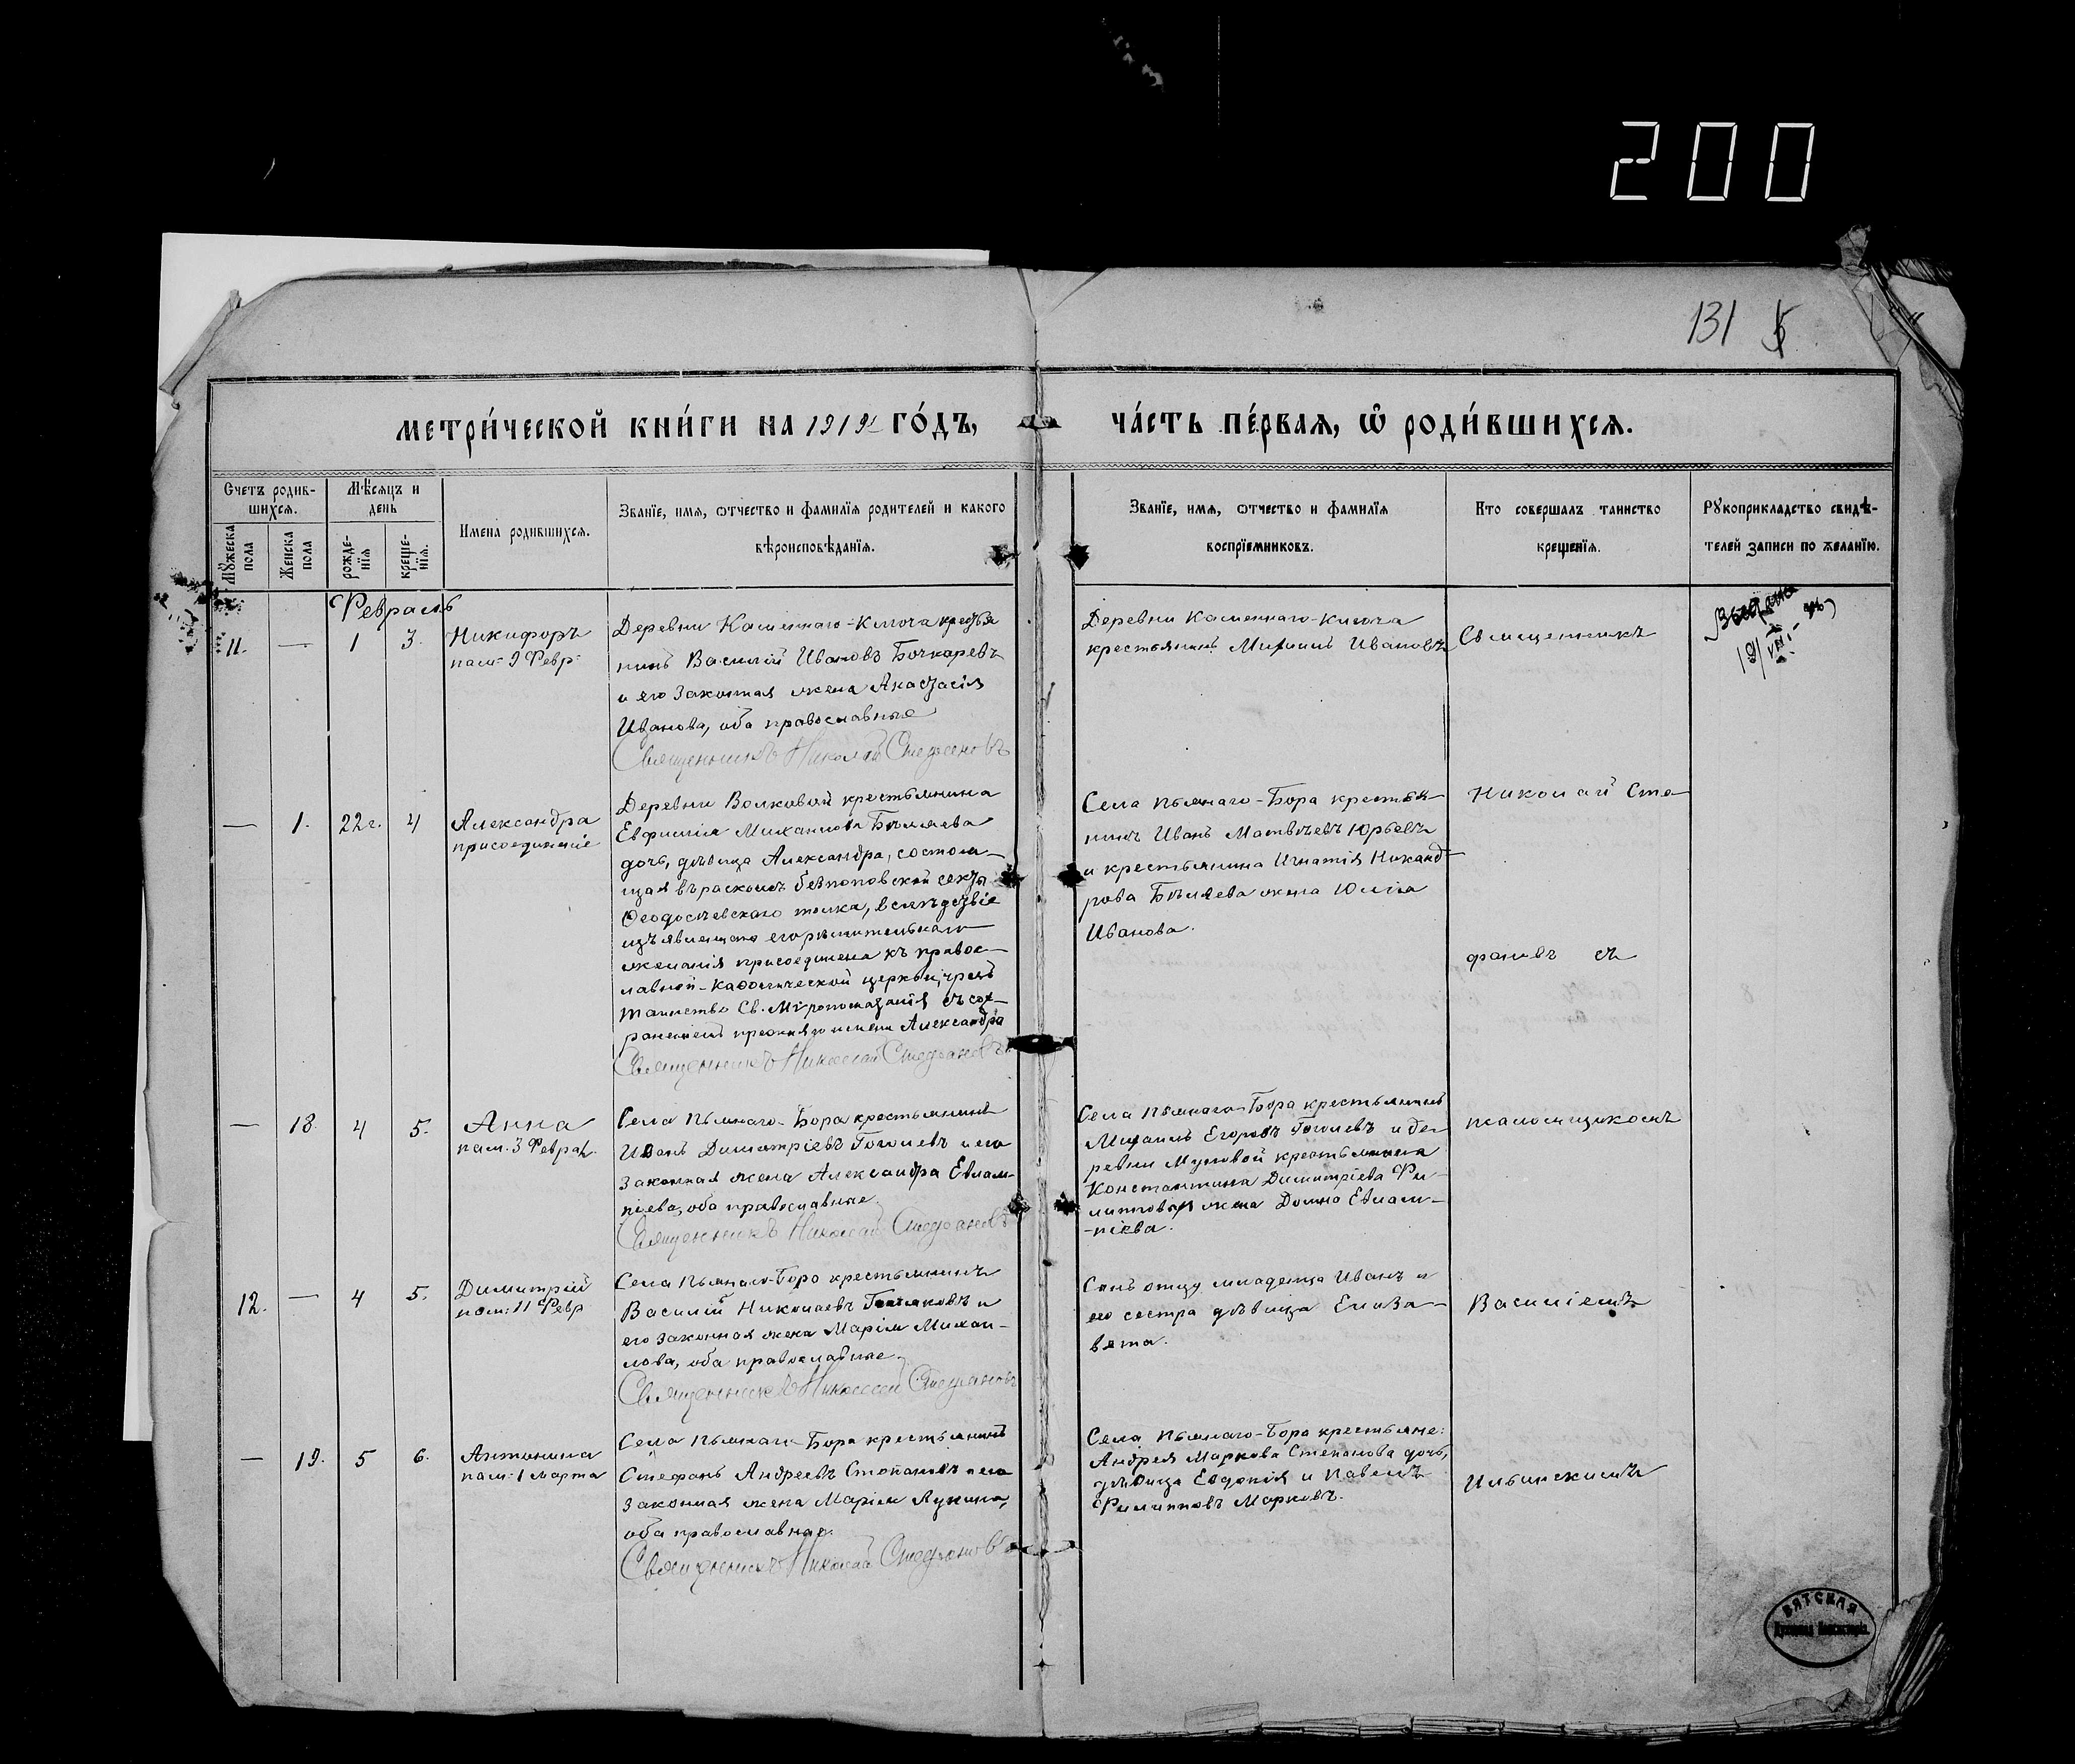 200
131 5
МЕТРИ́ЧЕСКОЙ КНИ́ГИ НА 1919 ГО́ДЪ,
ЧА́СТЬ ПЕ́РВАЯ, Ѡ҆ РОДИ́ВШИХСЯ.
Счетъ родив-
шихся.
Мꙋжеска
пола
Женска
пола
Мѣсяцъ и
день
рожде-
нїя
креще-
нїя.
Имена родившихся.
Званїе, имя, ѻтчество и фамилїя родителей и какого
вѣроисповѣданїя.
Званїе, имя, ѻтчество и фамилїя
воспрїемниковъ.
Кто совершалъ таинство
крещенїя.
Рꙋкоприкладство свидѣ-
телей записи по желанїю.
Февраль
11. — 1 3.
Никифоръ
пам. 9 Февр.
Деревни Каменнаго-Ключа крестья
нинъ Василій Ивановъ Бочкаревъ
и его законная жена Анастасія
Иванова, оба православные
Священникъ Николай Стефановъ
Деревни Каменнаго-Ключа
крестьянинъ Михаилъ Ивановъ
Священникъ
— 1. 22 г. 4
Александра
присоединеніе
Деревни Волковой крестьянина
Евфимія Михаилова Бѣляева
дочь, дѣвица Александра, состоя-
щая въ расколѣ безпоповской секты
Ѳеодосѣевскаго толка, вслѣдствіе
изъявленнаго его рѣшительнаго
желанія присоединена къ правос-
лавной-каѳолической церкви, чрезъ
таинство Св. Мѵропомазанія съ сох-
раненіемъ прежняго имени Александра
Священникъ Николай Стефановъ
Села Пьянаго-Бора крестья-
нинъ Иванъ Матвѣевъ Юрьевъ
и крестьянина Игнатія Никанд-
рова Бѣляева жена Юлія
Иванова.
Николай Сте-
фановъ съ
— 18. 4 5.
Анна
пам. 3 Феврал.
Села Пьянаго-Бора крестьянинъ
Иванъ Димитріевъ Гоголевъ и его
законная жена Александра Евлам-
піева, оба православные.
Священникъ Николай Стефановъ
Села Пьянаго-Бора крестьянинъ
Михаилъ Егоровъ Гоголевъ и де-
ревни крестьянина
Константина Димитріева Фи-
липпова жена Домна Евлам-
-піева.
псаломщикомъ
12. — 4 5.
Димитрій
пам: 11 Февр
Села Пьянаго-Бора крестьянинъ
Василій Николаевъ и
его законная жена Марія Михаи-
лова, оба православные.
Священникъ Николай Стефановъ
Сынъ отцу младенца Иванъ и
его сестра дѣвица Елиза-
вета.
Василіемъ
— 19. 5 6.
Антонина
пам. 1 марта
Села Пьянаго-Бора крестьянинъ
Стефанъ Андреевъ Степановъ и его
законная жена Марія Лукина,
оба православные.
Священникъ Николай Стефановъ
Села Пьянаго-Бора крестьяне:
Андрея Маркова Степанова дочь,
дѣвица Евдокія и Павелъ
Филипповъ Марковъ.
Ильинскимъ
ВЯТСКАЯ
Духовная Консисторія.